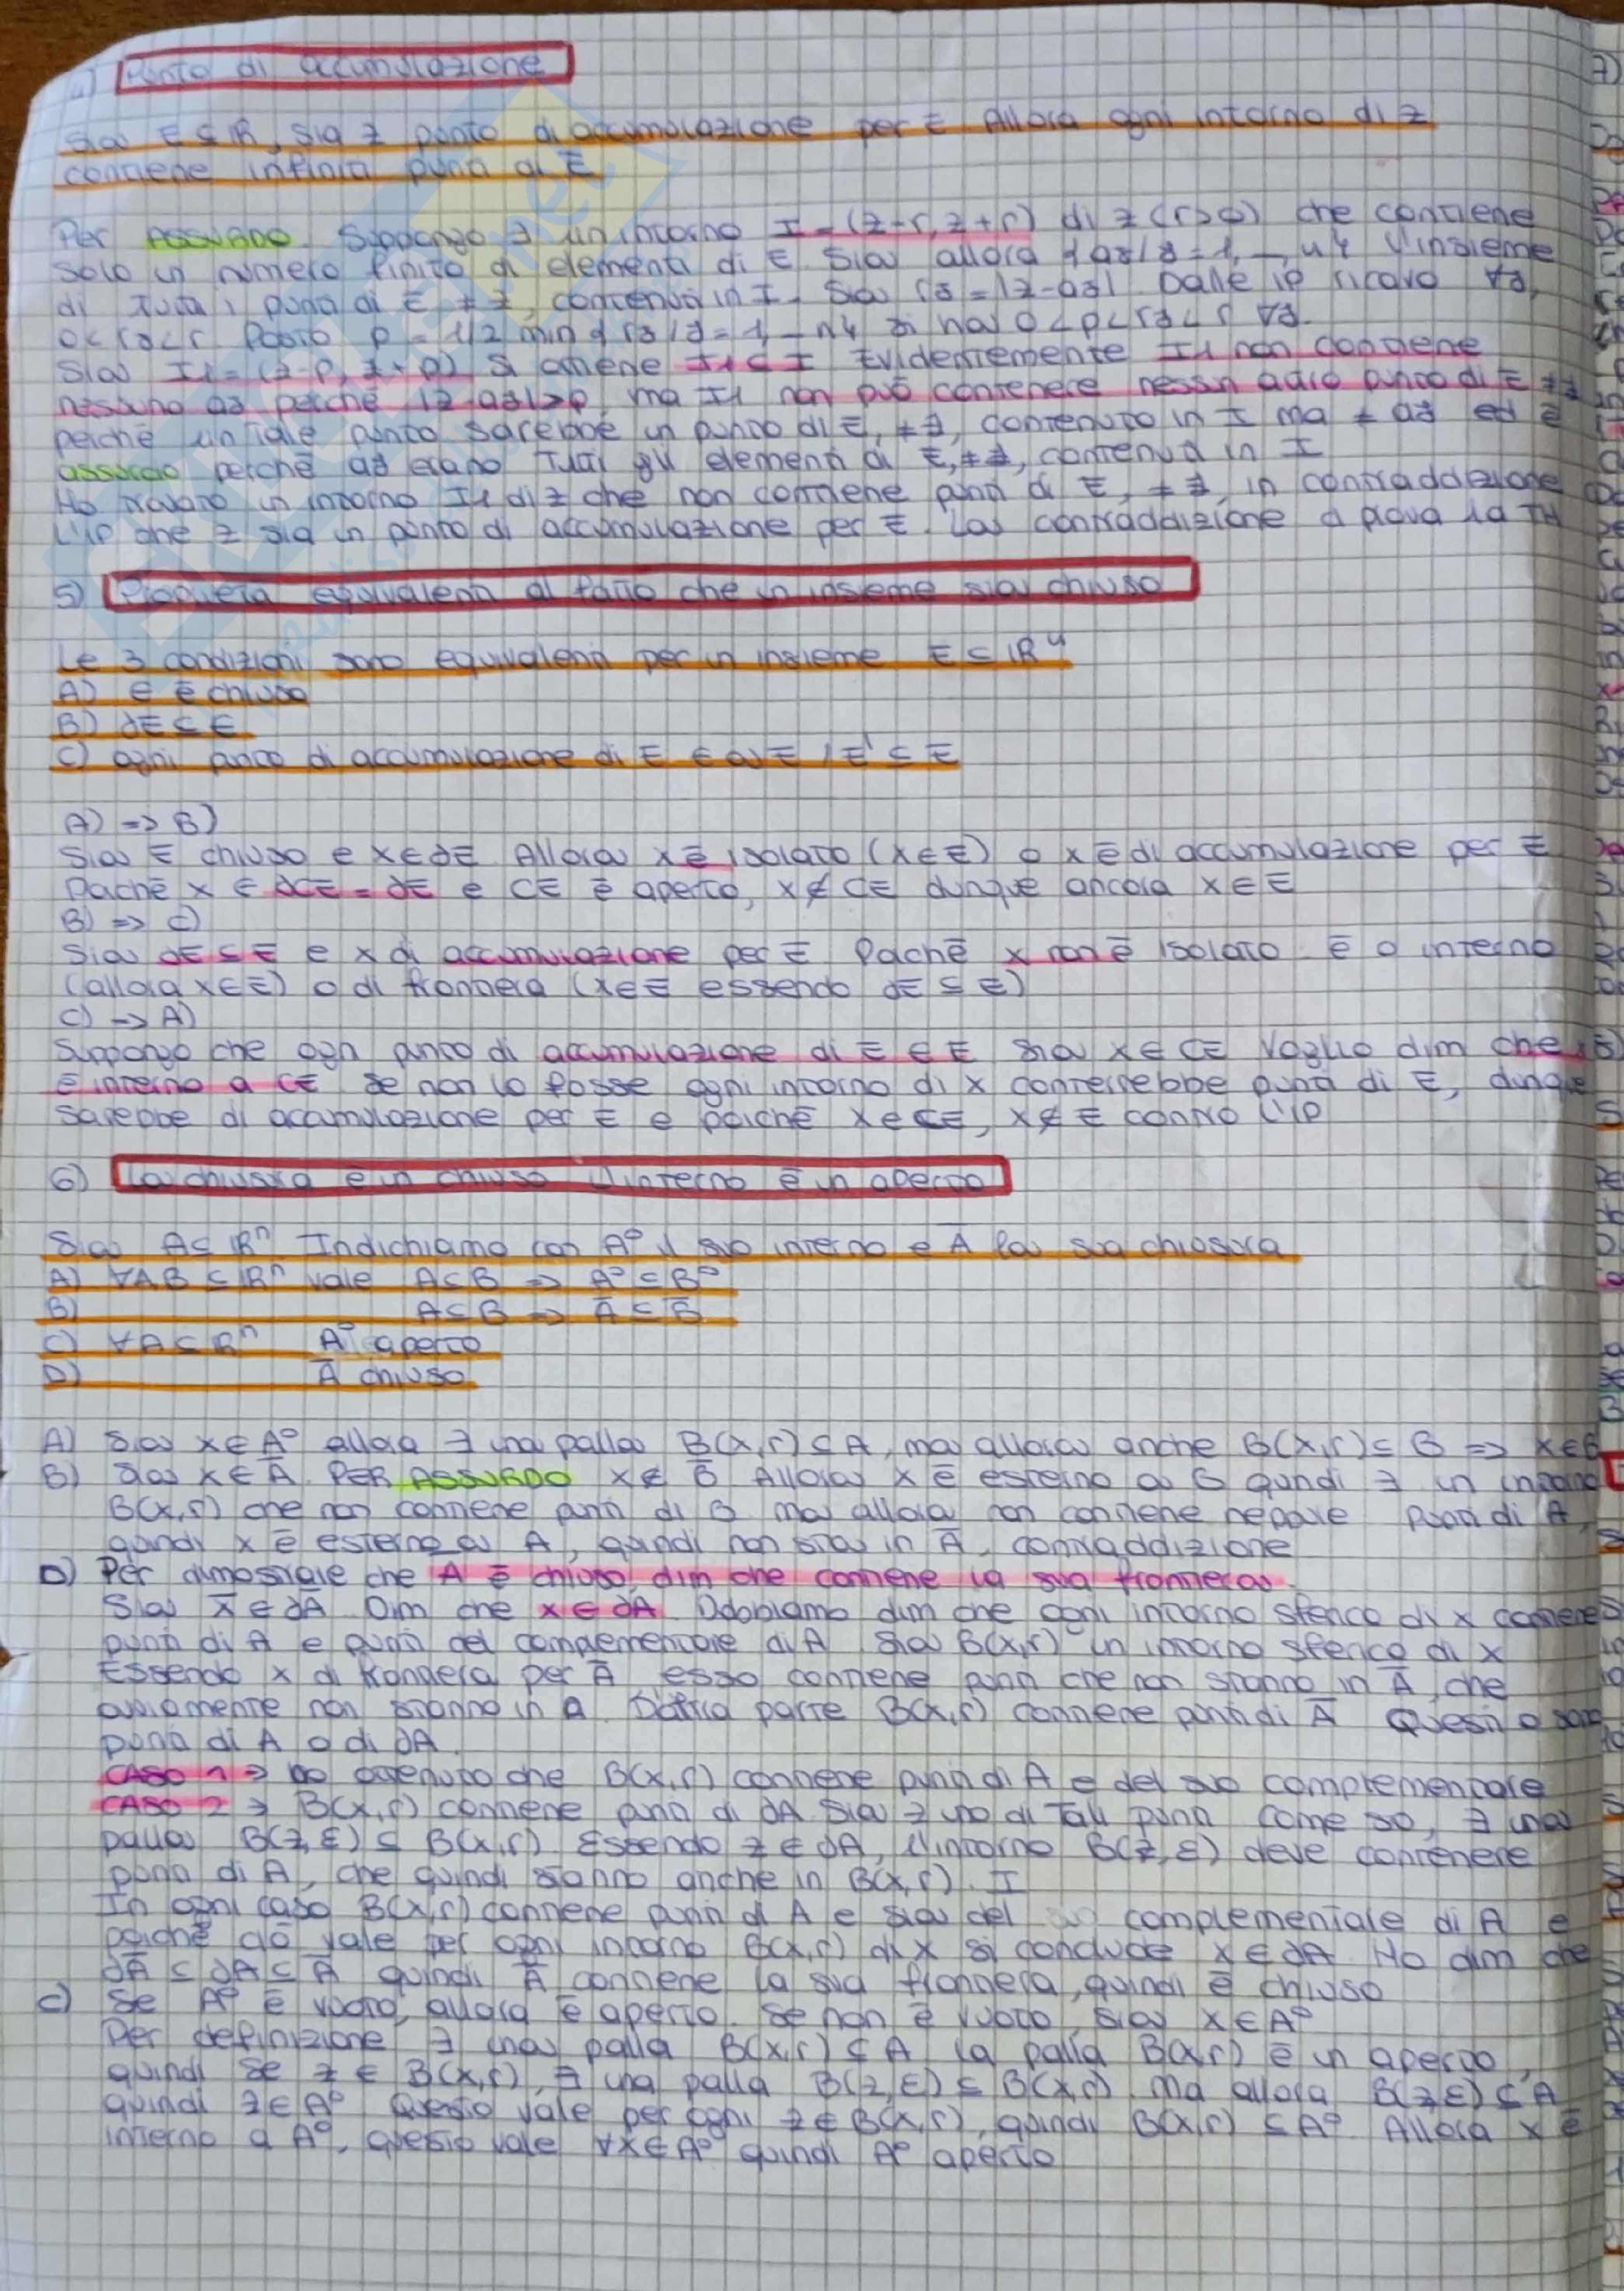 4) Punto di accumulazione
Sia E ⊆ ℝ, sia z punto di accumulazione per E Allora ogni intorno di z
contiene infiniti punti di E
Per ASSURDO. Suppongo ∃ un intorno I = (z-r, z+r) di z (r>0) che contiene
solo un numero finito di elementi di E Sia allora {aj / j = 1, _, n} l'insieme
di tutti i punti di E, ≠ z, contenuti in I. Sia rj = |z-aj| Dalle ip ricavo ∀j,
0< rj < r Posto ρ = 1/2 min {rj / j = 1, _ n} si ha 0 < ρ < rj < r ∀j.
Sia I1 = (z-ρ, z+ρ) Si ottiene I1 ⊆ I Evidentemente I1 non contiene
nessuno aj perché |z-aj|>ρ, ma I1 non può contenere nessun altro punto di E ≠ z
perché un tale punto sarebbe un punto di E, ≠ z, contenuto in I ma ≠ aj ed è
assurdo perché aj erano tutti gli elementi di E, ≠ z, contenuti in I
Ho trovato un intorno I1 di z che non contiene punti di E, ≠ z, in contraddizione
L'ip che z sia un punto di accumulazione per E. La contraddizione prova la TH
5) Proprietà equivalenti al fatto che un insieme sia chiuso
Le 3 condizioni sono equivalenti per un insieme E ⊆ ℝⁿ
A) E è chiuso
B) ∂E ⊆ E
C) ogni punto di accumulazione di E ∈ a E / E' ⊆ E
A) => B)
Sia E chiuso e x∈∂E Allora x è isolato (x∈E) o x è di accumulazione per E
Poiché x ∈ ∂CE = ∂E e CE è aperto, x∉CE dunque ancora x∈E
B) => C)
Sia ∂E ⊆ E e x di accumulazione per E Poiché x non è isolato è o interno
(allora x∈E) o di frontiera (x∈E essendo ∂E ⊆ E)
C) -> A)
Suppongo che ogn punto di accumulazione di E ∈ E Sia x∈CE Voglio dim che
è interno a CE Se non lo fosse ogni intorno di x conterrebbe punti di E, dunque
sarebbe di accumulazione per E e poiché x∈CE, x∉E contro l'ip
6) La chiusura è un chiuso L'interno è un aperto
Sia A⊆ℝⁿ Indichiamo con A° il suo interno e A̅ la sua chiusura
A) ∀A,B ⊆ ℝⁿ vale A⊆B => A° ⊆ B°
B) A⊆B => A̅ ⊆ B̅
C) ∀A⊆ℝⁿ A° aperto
D) A̅ chiuso
A) Sia x∈A° allora ∃ una palla B(x,r)⊆A, ma allora anche B(x,r)⊆B => x∈B
B) Sia x∈A̅. PER ASSURDO x∉B̅ Allora x è esterno a B quindi ∃ un intorno
B(x,r) che non contiene punti di B ma allora non contiene neppure punti di A,
quindi x è esterno a A, quindi non sta in A̅, contraddizione
D) Per dimostrare che A̅ è chiuso, dim che contiene la sua frontiera.
Sia x̅∈∂A̅ Dim che x∈∂A. Dobbiamo dim che ogni intorno sferico di x contiene
punti di A e punti del complementare di A Sia B(x,r) un intorno sferico di x
Essendo x di frontiera per A̅ esso contiene punti che non stanno in A̅, che
ovviamente non stanno in a. D'altra parte B(x,r) contiene punti di A̅ Questi o sono
punti di A o di ∂A.
CASO 1 → ho ottenuto che B(x,r) contiene punti di A e del suo complementare
CASO 2 → B(x,r) contiene punti di ∂A Sia z uno di tali punti Come so, ∃ una
palla B(z,ε) ⊆ B(x,r). Essendo z∈∂A, l'intorno B(z,ε) deve contenere
punti di A, che quindi stanno anche in B(x,r). I
In ogni caso B(x,r) contiene punti di A e sia del complementare di A e
poiché ciò vale per ogni intorno B(x,r) di x si conclude x∈∂A Ho dim che
∂A̅ ⊆ ∂A⊆A̅ quindi A̅ contiene la sua frontiera, quindi è chiuso
C) Se A° è vuoto, allora è aperto. Se non è vuoto, sia x∈A°
Per definizione ∃ una palla B(x,r) ⊆ A La palla B(x,r) è un aperto,
quindi se z ∈ B(x,r), ∃ una palla B(z,ε) ⊆ B(x,r). Ma allora B(z,ε) ⊆ A
quindi z∈A° Questo vale per ogni z∈B(x,r), quindi B(x,r) ⊆A° Allora x è
interno a A°, questo vale ∀x∈A° quindi A° aperto